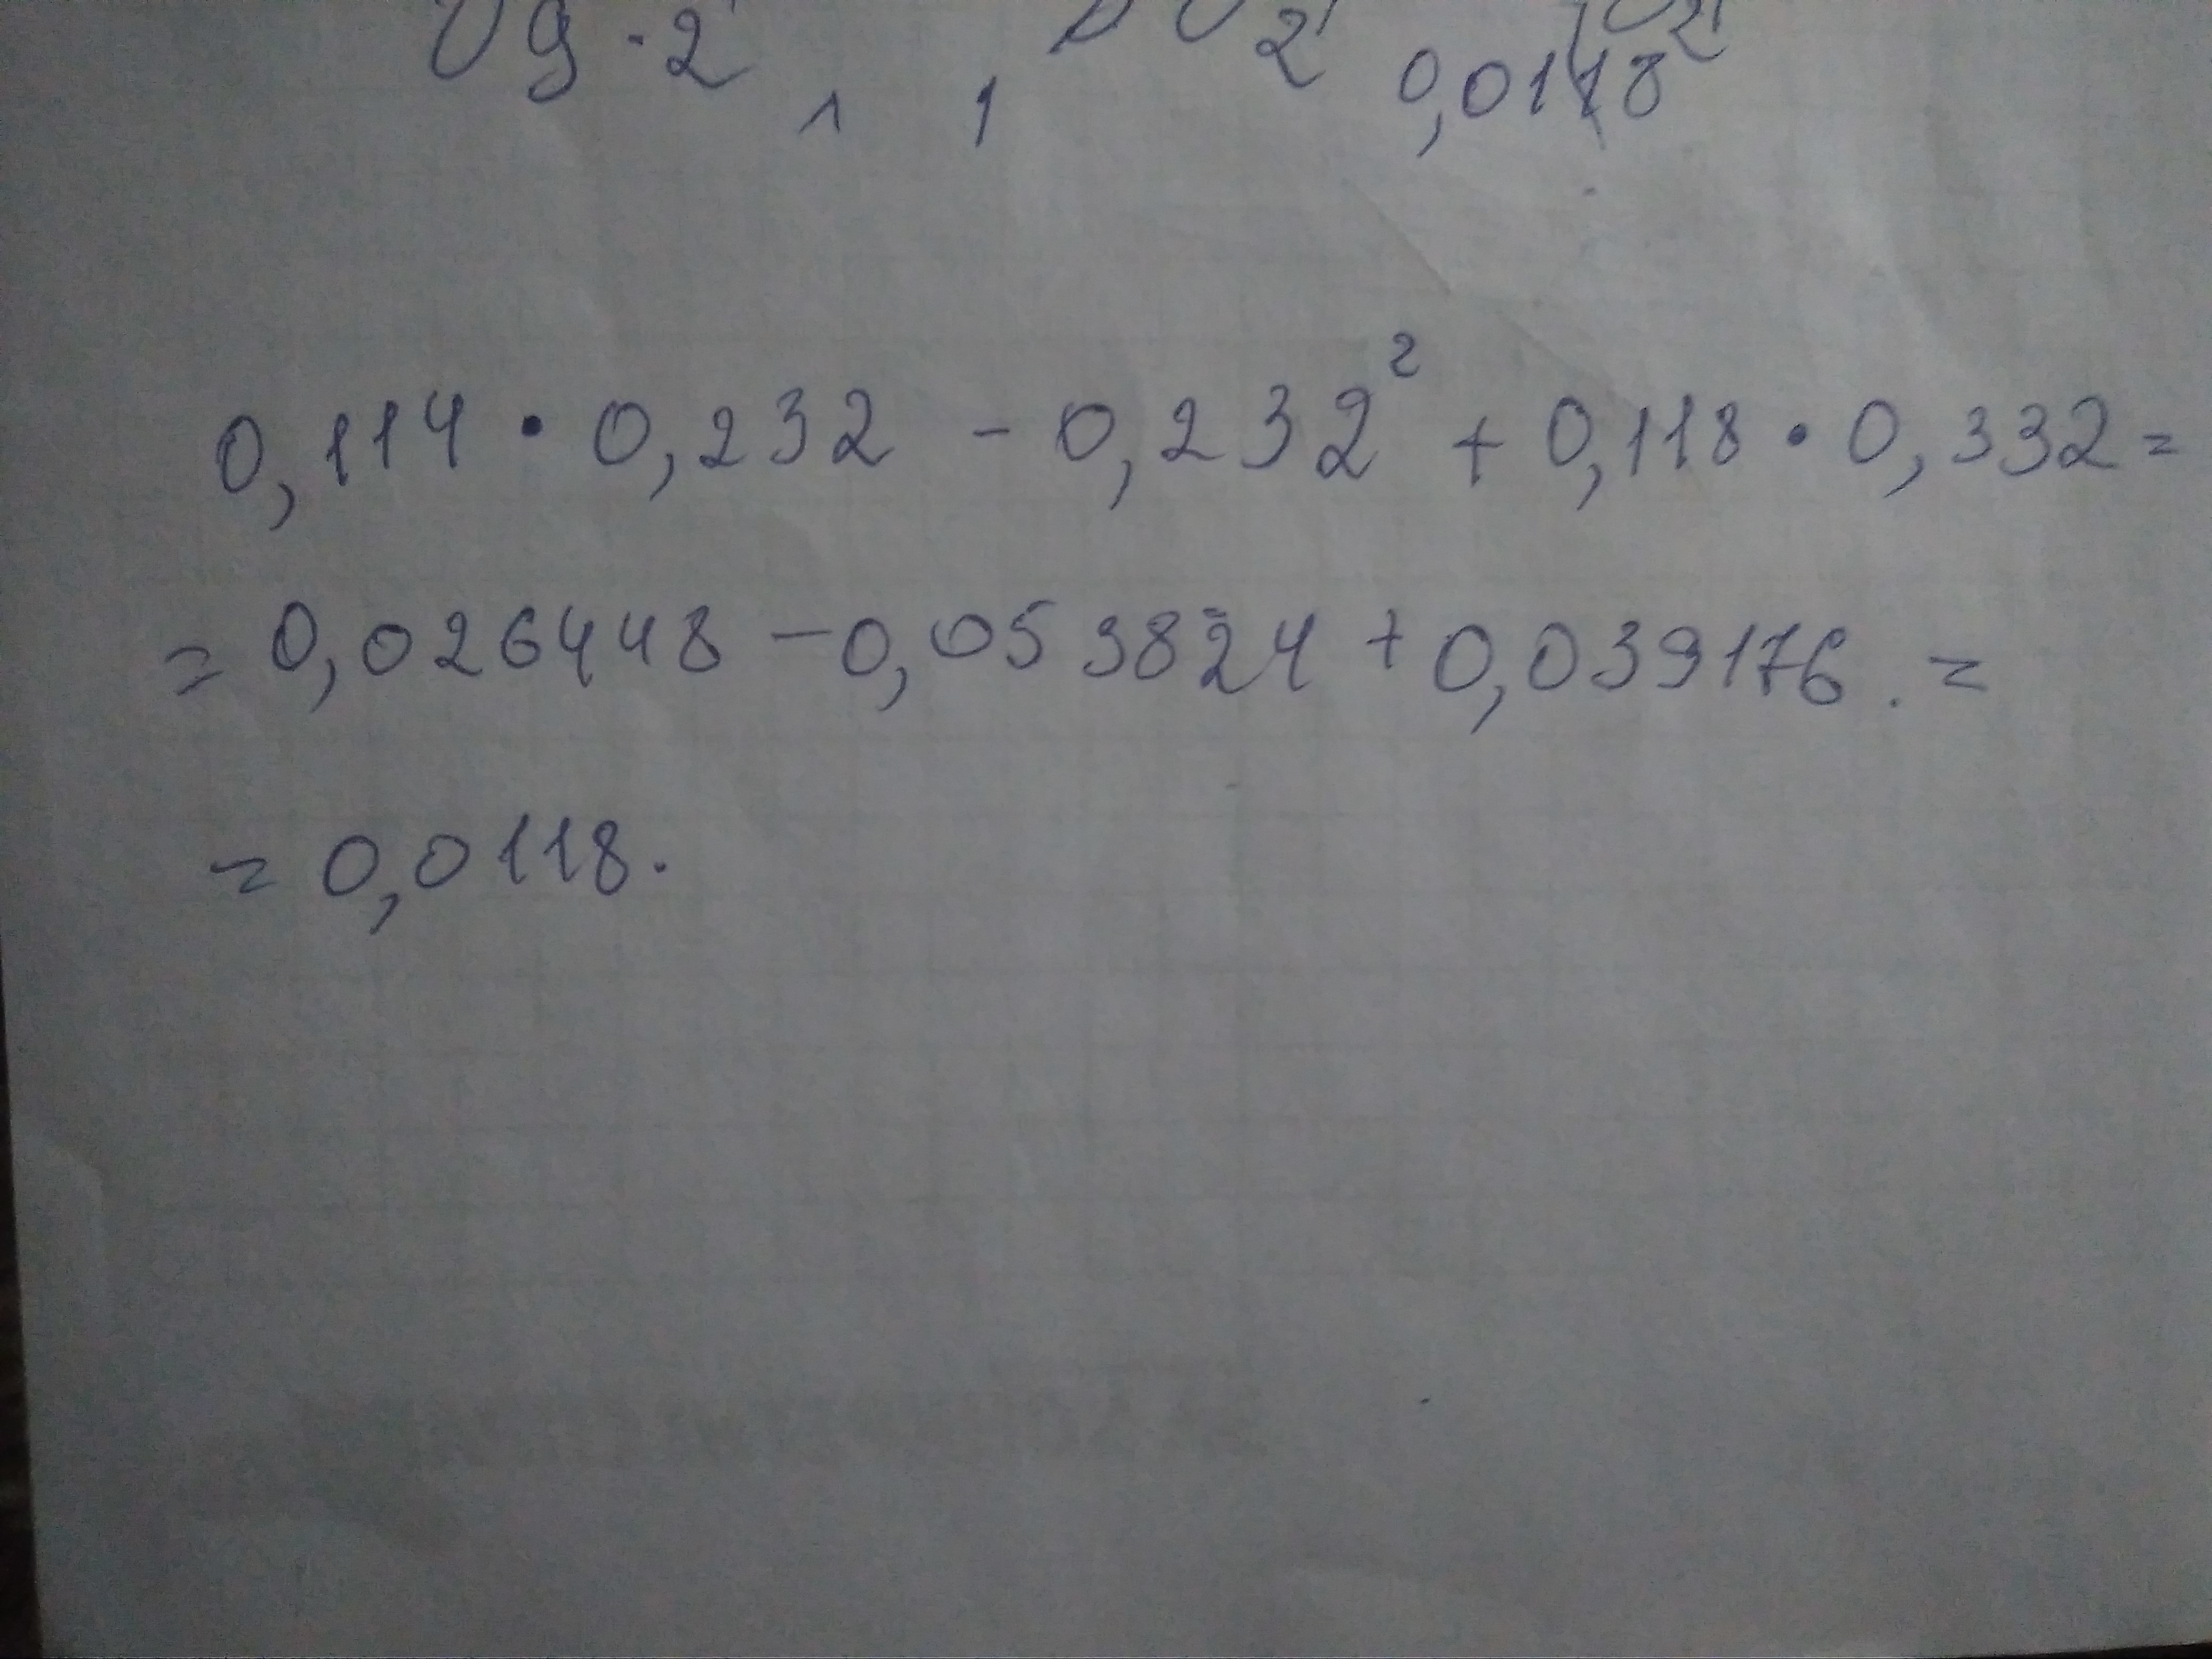 0,0118
0,114 · 0,232 - 0,232² + 0,118 · 0,332 =
= 0,026448 - 0,053824 + 0,039176. =
= 0,0118.